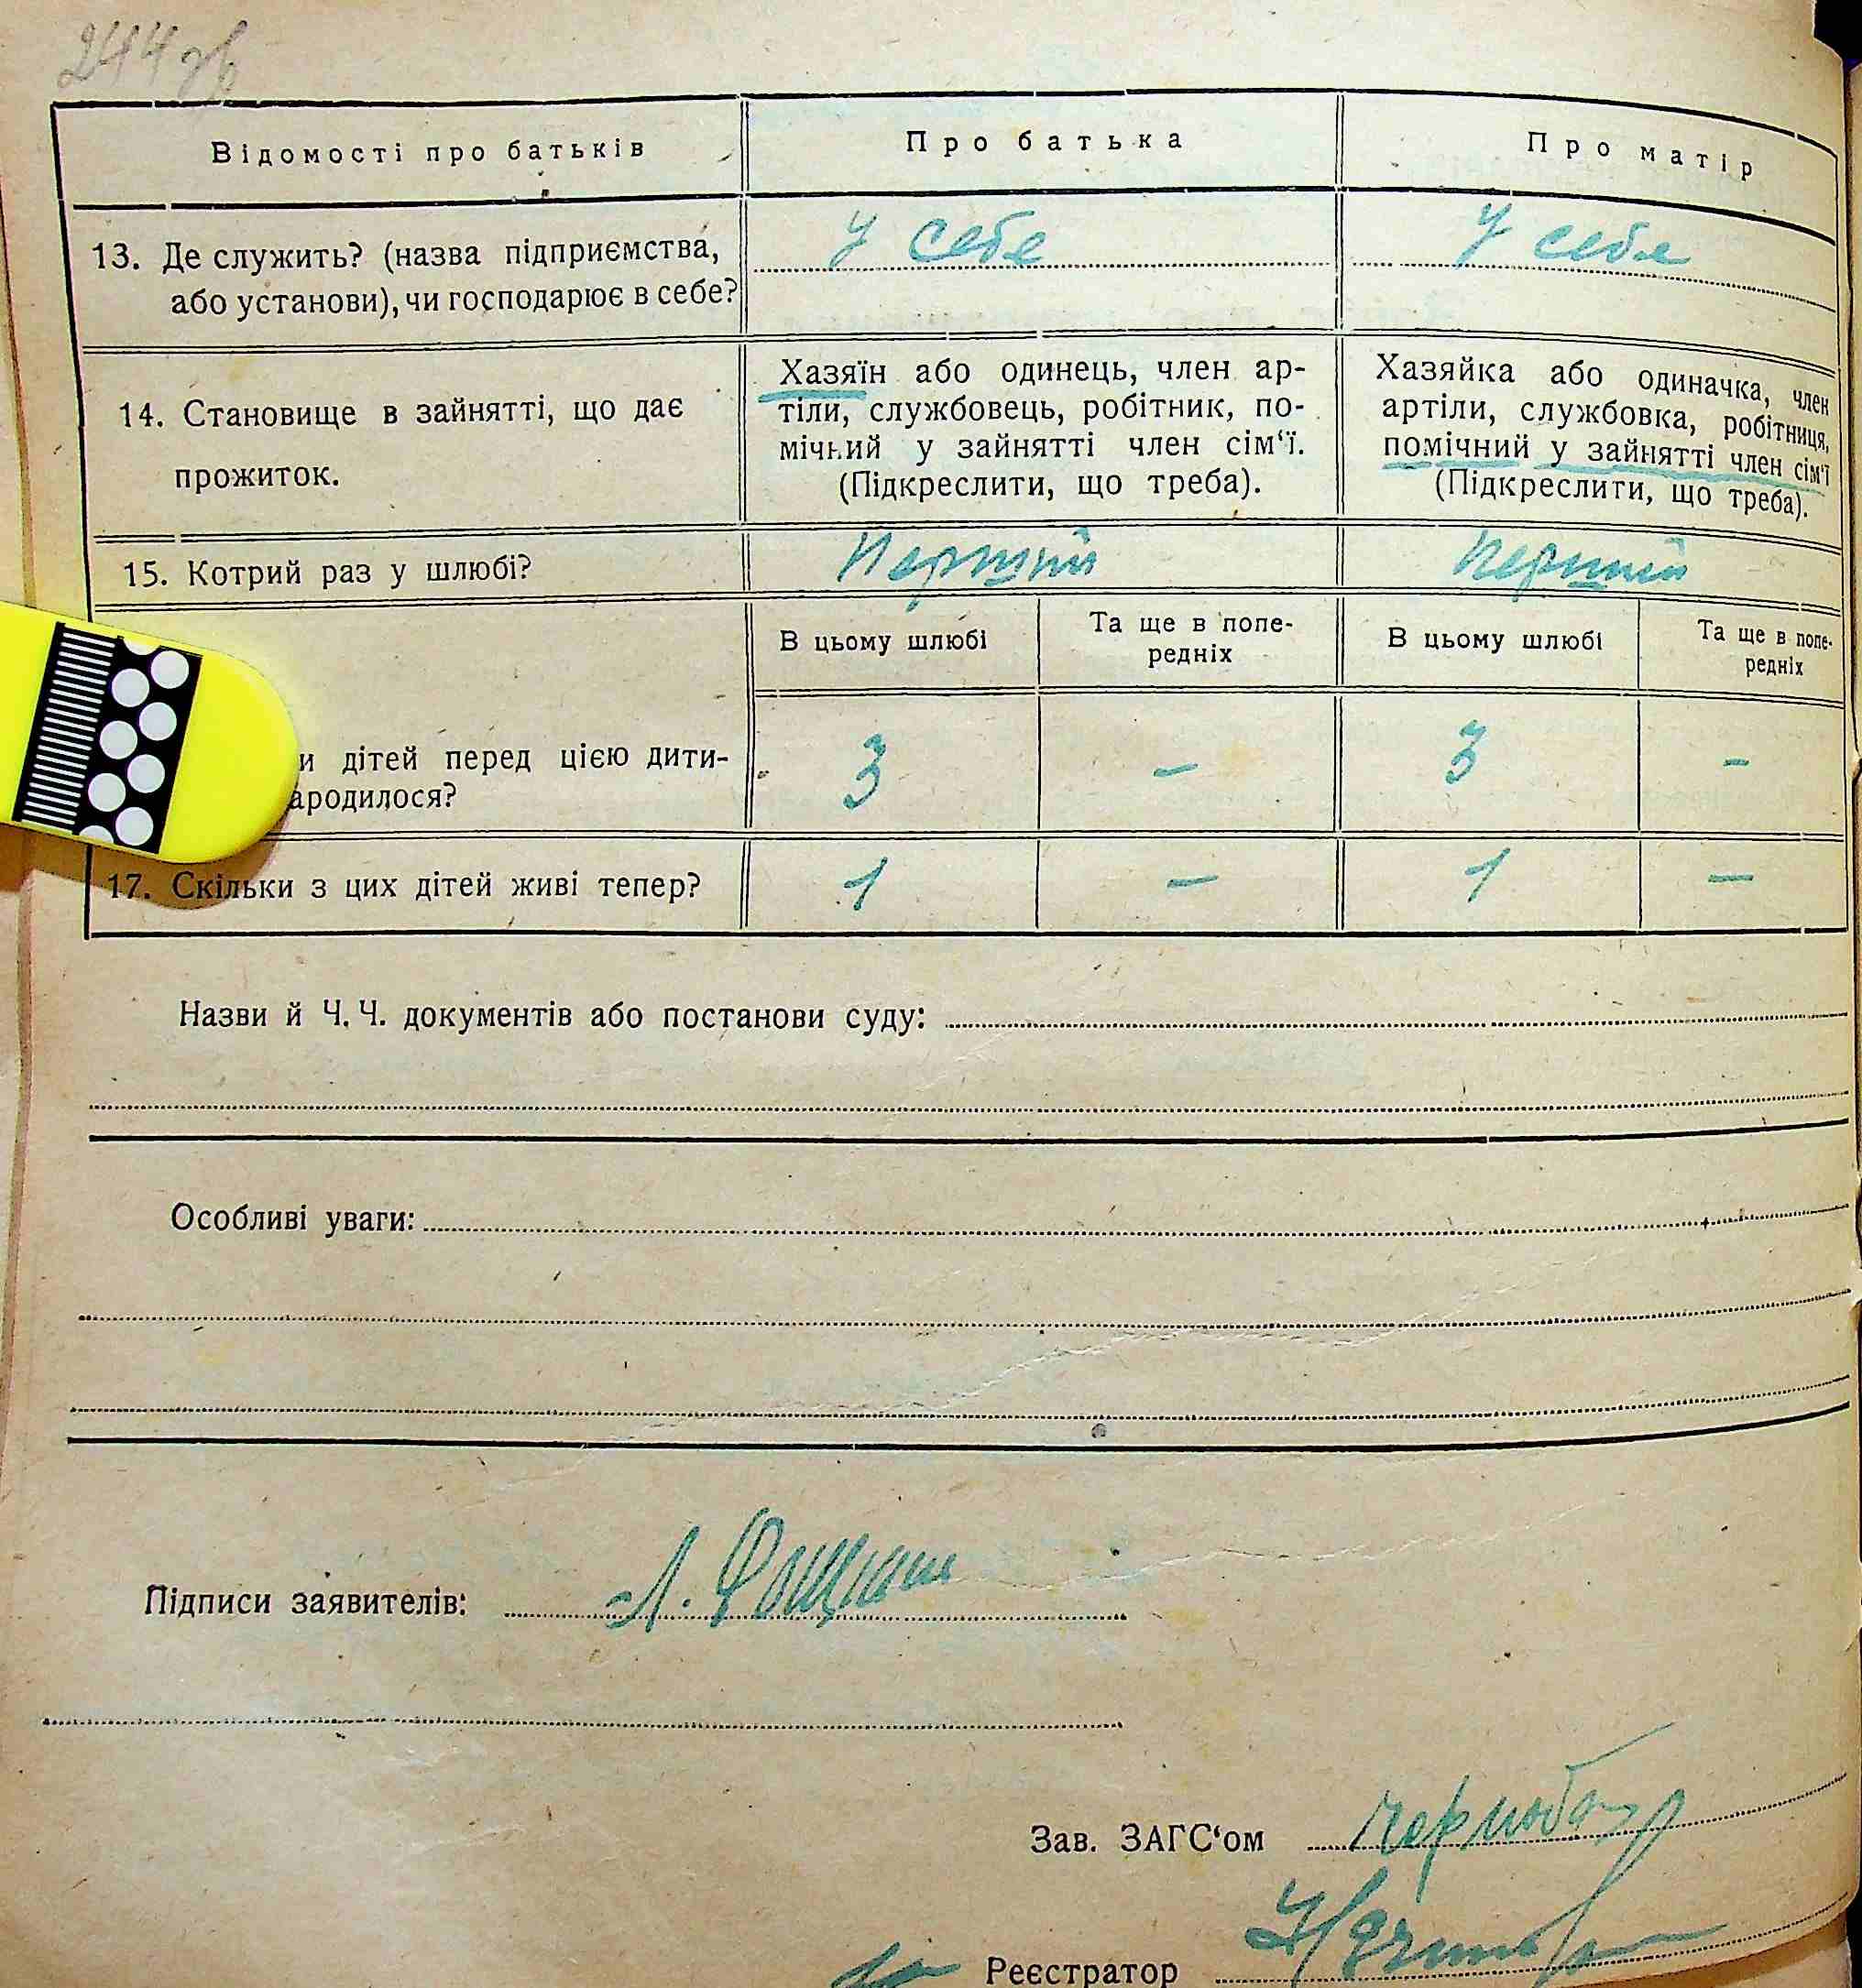 244 зв
Відомості про батьків
Про батька
Про матір
13. Де служить? (назва підприємства,
або установи), чи господарює в себе?
У себе
У себе
14. Становище в зайнятті, що дає
прожиток.
Хазяїн або одинець, член ар-
тіли, службовець, робітник, по-
мічний у зайнятті член сім‘ї.
(Підкреслити, що треба).
Хазяйка або одиначка, член
артіли, службовка, робітниця,
помічний у зайнятті член сім‘ї
(Підкреслити, що треба).
15. Котрий раз у шлюбі?
Перший
Перший
В цьому шлюбі
Та ще в попе-
редніх
В цьому шлюбі
Та ще в попе-
редніх
и дітей перед цією дити-
ародилося?
3
–
3
–
17. Скільки з цих дітей живі тепер?
1
–
1
–
Назви й Ч. Ч. документів або постанови суду:
Особливі уваги:
Підписи заявителів:
Л.
Зав. ЗАГС‘ом
Реєстратор